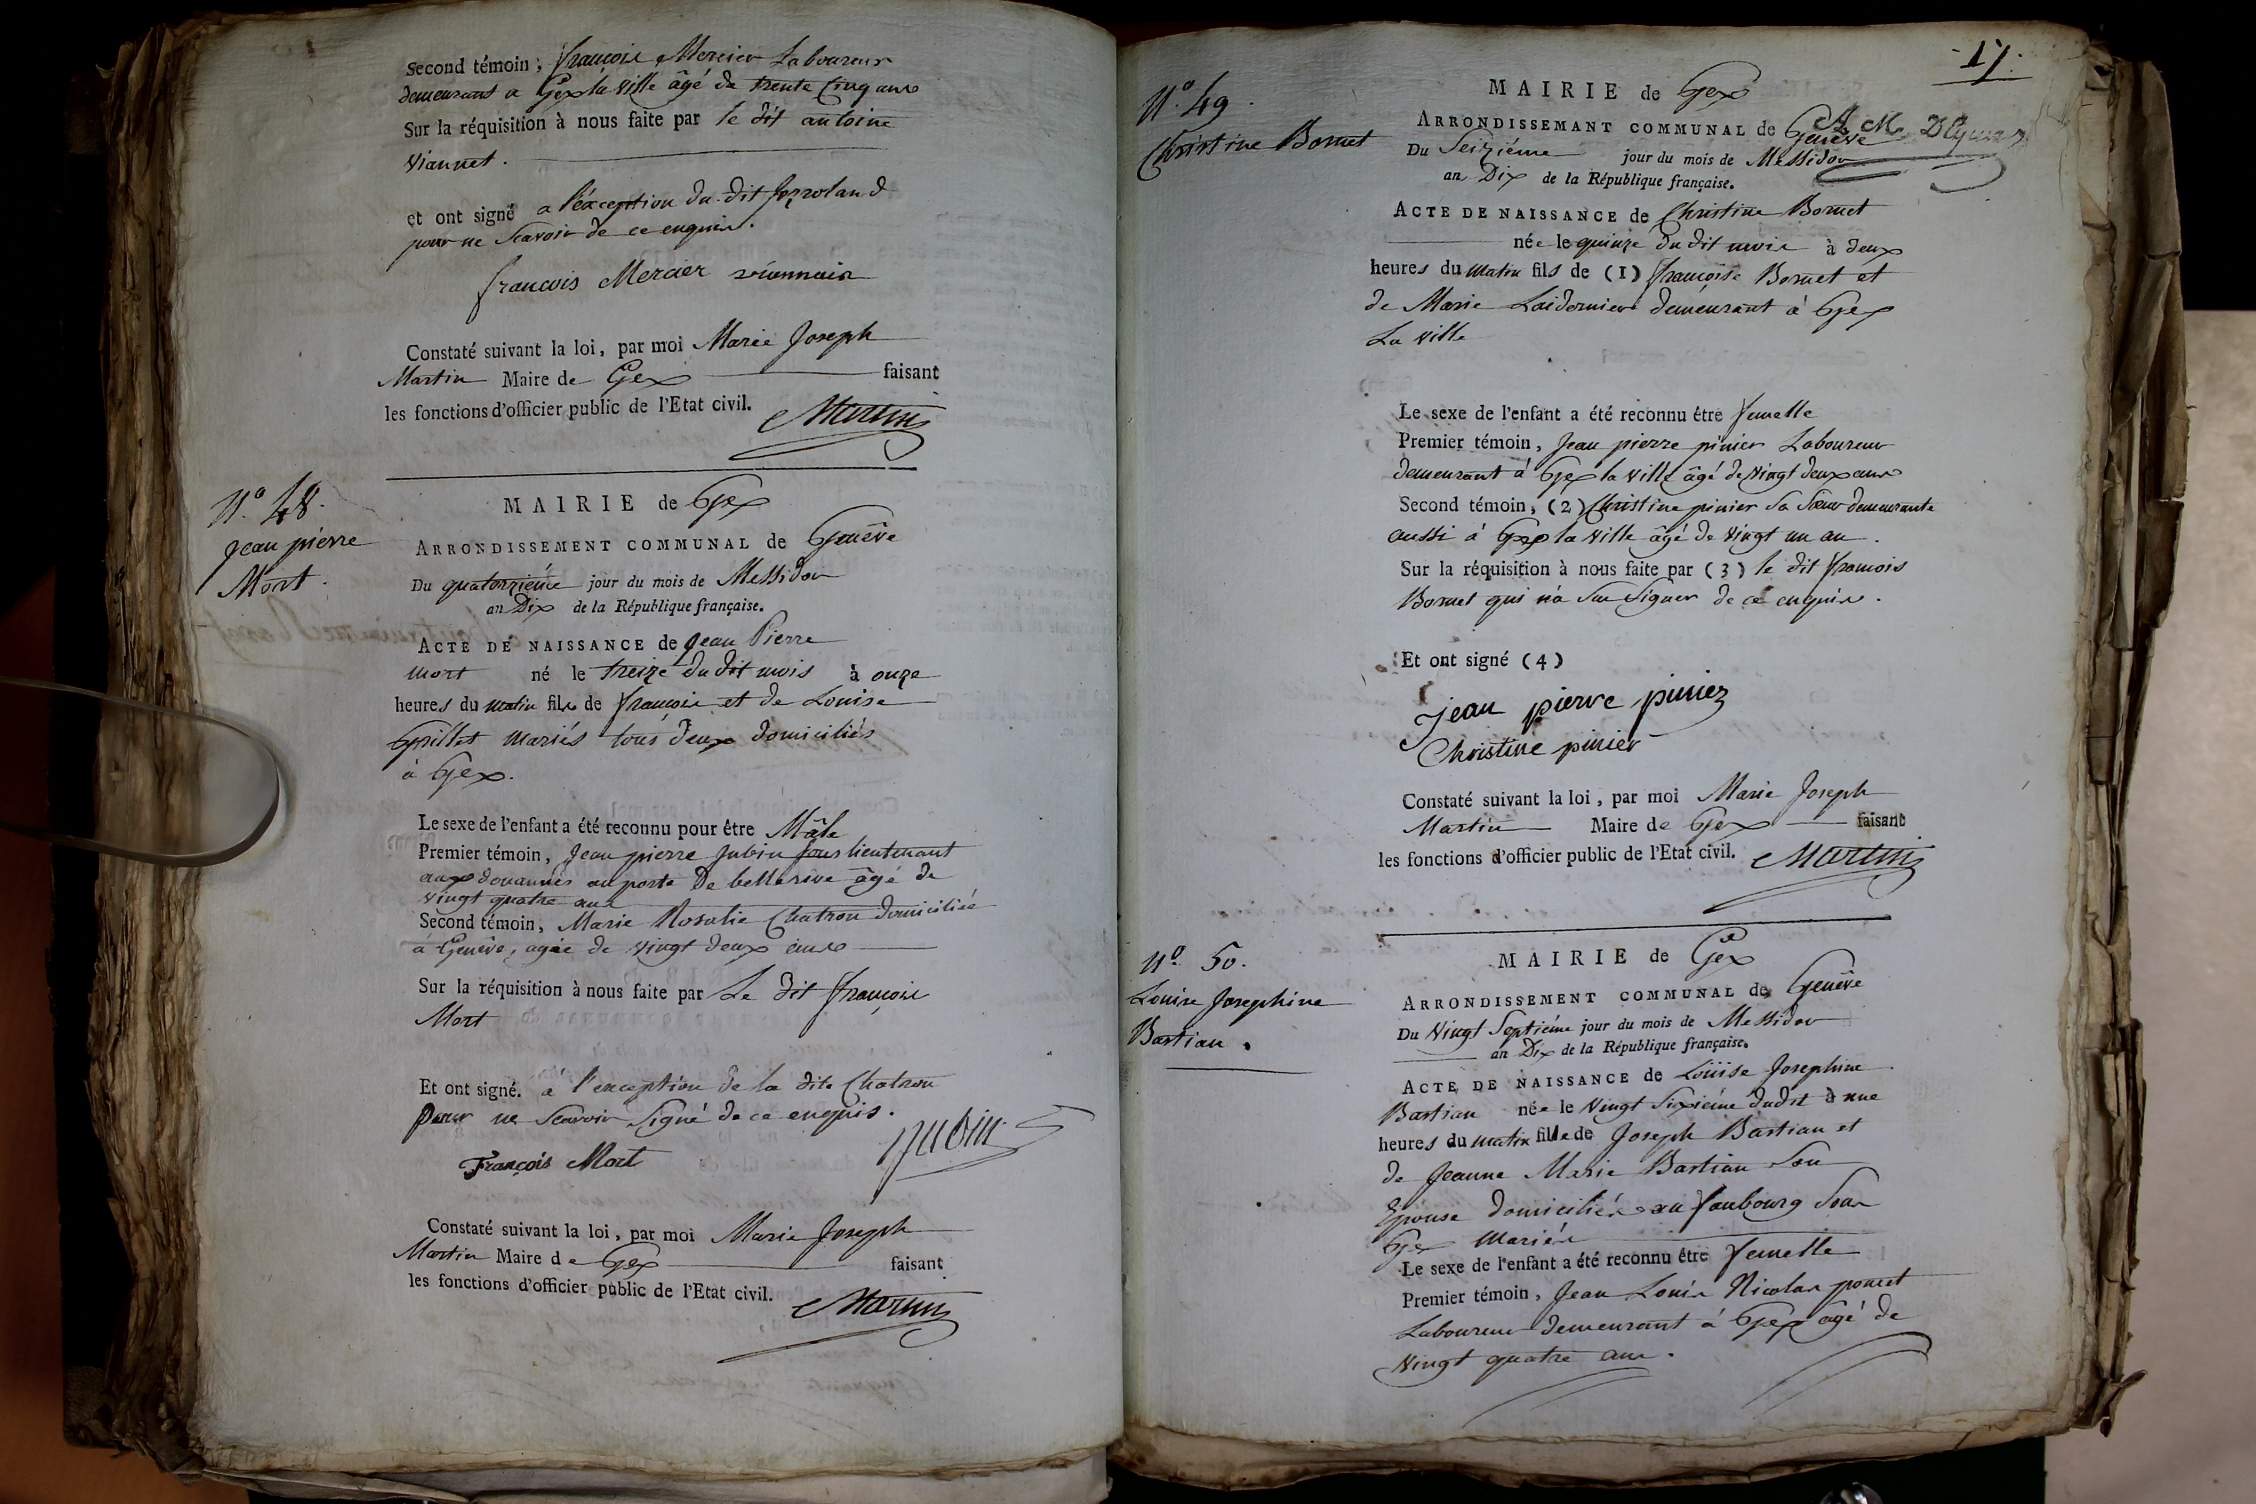 Second témoin, françois Mercier Laboureur
demeurant a Gex la ville âgé de trente Cinq ans
Sur la réquisition à nous faite par le dit antoine
Viannet.
et ont signé a l'éxception du dit
pour ne Scavoir de ce enquis.
francois Mercier
Constaté suivant la loi, par moi Marie Joseph
Martin Maire de Gex faisant
les fonctions d'officier public de l'Etat civil.
Martin
N.º 48.
Jean pierre
Mort.
MAIRIE de Gex
ARRONDISSEMENT COMMUNAL de Genêve
Du quatorzieme jour du mois de Messidor
an Dix de la République française.
ACTE DE NAISSANCE de Jean Pierre
Mort né le treize du dit mois à onze
heures du matin fils de françois et de Louise
Grillet mariés tous deux domiciliés
à Gex.
Le sexe de l'enfant a été reconnu pour être Mâle
Premier témoin, Jean pierre Jubin sous lieutenant
aux douannes au poste de bellerive âgé de
vingt quatre ans
Second témoin, Marie Rosalie Chatron domiciliée
à Genêve, agée de vingt deux ans
Sur la réquisition à nous faite par Le dit françois
Mort
Et ont signé. à l'exception de la dite Chatron
pour ne Scavoir Signé de ce enquis.
François Mort Jubin
Constaté suivant la loi, par moi Marie Joseph
Martin Maire de Gex faisant
les fonctions d'officier public de l'Etat civil.
Martin
17.
N.º 49.
Christine Bornet
MAIRIE de Gex
ARRONDISSEMANT COMMUNAL de Genêve
Du Seizième jour du mois de Messidor
an Dix de la République française.
ACTE DE NAISSANCE de Christine Bornet
née le quinze du dit mois à deux
heures du matin fils de (1) françois Bornet et
de Marie Laidernier demeurant à Gex
La ville
Le sexe de l'enfant a été reconnu être femelle
Premier témoin, Jean pierre pinier Laboureur
demeurant à Gex la ville âgé de vingt deux ans
Second témoin, (2) Christine pinier Sa Sœur demeurante
aussi à Gex la ville âgé de vingt un an.
Sur la réquisition à nous faite par (3) le dit francois
Bornet qui n'a Su Signer de ce enquis.
Et ont signé (4)
Jean pierre pinier
Christine pinier
Constaté suivant la loi, par moi Marie Joseph
Martin Maire de Gex faisant
les fonctions d'officier public de l'Etat civil.
Martin
N.º 50.
Louise Josephine
Bastian.
MAIRIE de Gex
ARRONDISSEMENT COMMUNAL de Genêve
Du Vingt Septiéme jour du mois de Messidor
an Dix de la République française.
ACTE DE NAISSANCE de Louise Josephine
Bastian née le Vingt Sixieme dudit à une
heures du matin fille de Joseph Bastian et
de Jeanne Marie Bastian Son
Epouse domiciliés au faubourg Sous
Gex Mariés
Le sexe de l'enfant a été reconnu être femelle
Premier témoin, Jean Louis Nicolas poncet
Laboureur demeurant à Gex âgé de
vingt quatre ans.